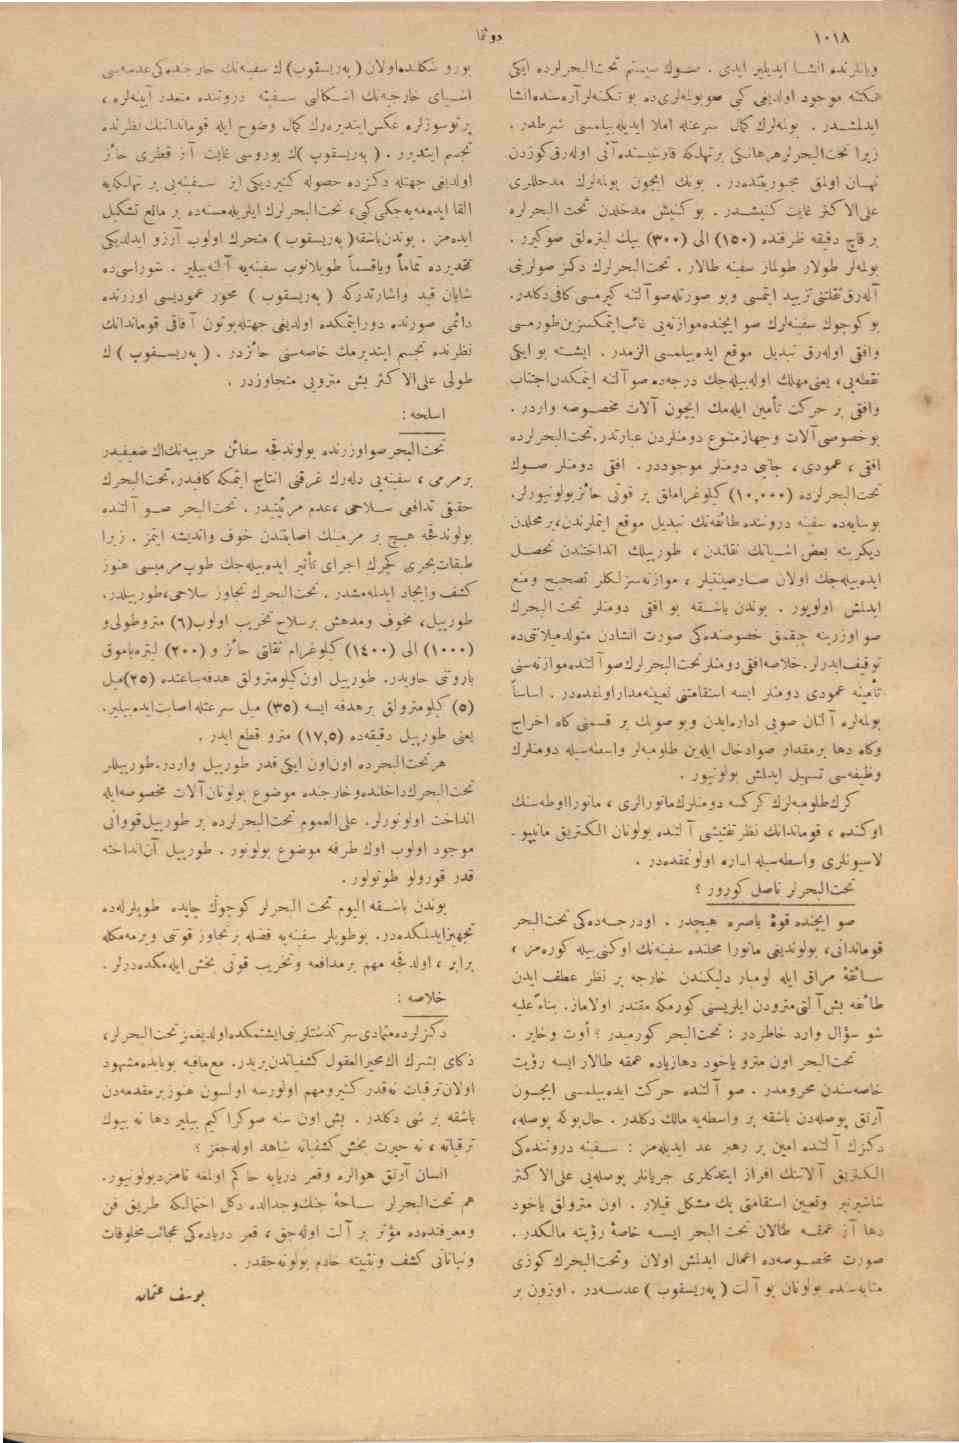 ١٠١٨
دونما
ويانلرنده انشا ايديلير ايدى . صوك سيستم تحت‌البحرلرده ايكى
تكنه موجود اولديغى كبى صو بولمه‌لرى ده بو تكنه‌لر آره‌سنده انشا
ايدلمشدر . بولمه‌لرك كمال سرعتله املا ايديله‌بيلمسى شرطدر .
زيرا تحت‌البحرلر هر هانكى بر تهلكه قارشيسنده آنى اوله‌رق كوزدن
نهان اولمق مجبوريتنده‌در . بونك ايچون بولمه‌لرك مدخللرى
على‌الاكثر غايت كنيشدر . بو كنيش مدخلدن تحت البحرلره
بر قاچ دقيقه ظرفنده (١٥٠) الى (٣٠٠) بيك ليتره‌لق صو كيرر .
بولمه‌لر طولار طولماز سفينه طالار . تحت‌البحرلرك دكز صولرينى
آله‌رق ثقلتنى تزييد ايتمسى وبو صورتله صو آلتنه كيرمسى كافى دكلدر.
بو كوچوك سفينه‌لرك صو ايچنده موازنه‌يى غائب ايتمكسزين طورمسى
وافقى اوله‌رق تبديل موقع ايده‌بيلمسى الزمدر . ايشته بو ايكى
نقطه‌يى ، يعنى مهلك اوله‌بيله‌جك درجه‌ده صو آلتنه ايتمكدن اجتناب
وافقى بر حركت تأمين ايله‌مك ايچون آلات مخصوصه واردر .
بو خصوصى آلات وجهاز متنوع دومنلردن عبارتدر. تحت‌البحرلرده
افقى ، عمودى ، جانبى دومنلر موجوددر. افقى دومنلر صوك
تحت‌البحرلرده (١٠,٠٠٠) كيلوغراملق بر قوتى حائز بولونيورلر.
بوسايه‌ده سفينه دروننده طائفه‌نك تبديل موقع ايتملرندن، بر محلدن
ديكرينه بعض اشيانك نقلندن ، طورپيلك انداختندن تحصل
ايده‌بيله‌جك اولان صارصينتيلر ، موازنه‌سزلكلر تصحيح ومنع
ايدلمش اولويور . بوندن باشقه بو افقى دومنلر تحت البحرك
صو اوزرينه چيقمق خصوصنده‌كى صورت انشادن متولد ميلاننى ده
توقيف ايدرلر. خلاصه افقى دومنلر تحت‌البحرلرك صو آلتنده موازنه‌سنى
تأمينه عمودى دومنلر ايسه استقامتنى تعيينه مدار اولمغده‌در . اساساً
بولمه‌لره آلنان صويى اداره ايدن وبو صويك بر قسمنى كاه اخراج
وكاه دها بر مقدار صو ادخال ايله‌ين طلومبه‌لر واسطه‌سيله دومنلرك
وظيفه‌سى تسهيل ايدلمش بولونيور .
كرك طلومبه‌لرك كركسه دومنلرك مانورالرى ، مانورا اوطه‌سنك
اوكنده ، قوماندانك نظر تفتيشى آلتنده بولونان الكتريق مانيپو-
لاسيونلرى واسطه‌سيله اداره اولونمقده‌در .
تحت‌البحرلر ناصل كورور ؟
صو ايچنده قوهٔ باصره هيچدر . اودرجه‌ده كى تحت‌البحر
قوماندانى، بولونديغى مانورا محلنده سفينه‌نك اوكنى بيله كوره‌مز ،
سائقهٔ مراق ايله لومبار دليكندن خارجه بر نظر عطف ايدن
طائفه بش آلتى مترودن ايليريسنى كورمكه مقتدر اولاماز. بناءً عليه
شو سؤال وارد خاطردر : تحت‌البحر كورميدر ؟ أوت وخاير .
تحت‌البحر اون مترو ياخود دها زياده عمقه طالار ايسه رؤيت
خاصه‌سندن محرومدر . صو آلتنده حركت ايده‌بيلمسى ايچون
آرتق پوصله‌دن باشقه بر واسطه‌يه مالك دكلدر . حال‌بوكه پوصله،
دكزك آلتنده امين بر رهبر عد ايديله‌مز : سفينه دروننده‌كى
الكتريق آلاتنك افراز ايتدكلرى جريانلر پوصله‌يى على‌الاكثر
شاشيرتير وتعيين استقامتى پك مشكل قيلار . اون مترولق ياخود
دها آز عمقه طالان تحت البحر ايسه خاصهٔ رؤيته مالكدر .
صورت مخصوصه‌ده اعمال ايدلمش اولان وتحت‌البحرك كوزى
مثابه‌سنده بولونان بو آلت ( په‌ريسقوپ ) عدسه‌در . اوزون بر
بورو شكلنده اولان ( په‌ريسقوپ) ك سفينه‌نك خارجنده‌كى عدسه‌سى
اشياى خارجيه‌نك اشكالنى سفينه دروننده متعدد آيينه‌لره ،
پرتوسوزلره عكس ايتديره‌رك كمال وضوح ايله قوماندانك نظرنده
تجسم ايتديرر . ( په‌ريسقوپ )ك بوروسى غايت آز قطرى حائز
اولديغى جهتله دكزده حصوله كتيرديكى ايز سفينه‌يى بر تهلكه‌يه
القا ايده‌مه‌يه‌جكى كبى، تحت‌البحرلرك ايلريله‌مسنه‌ده بر مانع تشكيل
ايده‌مز . بوندن باشقه( په‌ريسقوپ ) متحرك اولوب آرزو ايدلديكى
تقديرده تماماً وياقسماً طوپلانوب سفينه‌يه آلنه‌بيلير . شوراسى ده
شايان قيد واشارتدركه ( په‌ريسقوپ ) محور عموديسى اوزرنده
دائمى صورتده دور ايتمكده اولديغى جهتله بوتون آفاقى قوماندانك
نظرنده تجسم ايتديرمك خاصه‌سنى حائزدر . ( په‌ريسقوپ ) ك
طولى على‌الاكثر بش مترويى متجاوزدر .
اسلحه :
تحت‌البحر صو اوزرنده بولوندقجه سفائن حربيه‌نك اك ضعيفيدر
بر مرمى ، سفينه‌يى دله‌رك غرقنى انتاج ايتمكه كافيدر. تحت‌البحرك
حقيقى تدافعى سلاحى ،عدم مرئيتيدر . تحت‌البحر صو آلتنده
بولوندقجه هيچ بر مرمينك اصابتندن خوف وانديشه ايتمز . زيرا
طبقات بحرى كچرك اجراى تأثير ايده‌بيله‌جك طوپ مرميسى هنوز
كشف وايجاد ايدلمه‌مشدر . تحت‌البحرك تجاوز سلاحى، طورپيلدر.
طورپيل، مخوف ومدهش بر سلاح تخريب اولوب(٦) مترو طولى و
(١٠٠٠) الى (١٤٠٠) كيلوغرام ثقلتى حائز و (٢٠٠) ليتره پاموق
باروتنى حاويدر. طورپيل اون كيلومترولق هدفه ساعتده (٢٥)ميل
(٥) كيلومترولق بر هدفه ايسه (٣٥) ميل سرعتله اصابت ايده‌بيلير.
يعنى طورپيل دقيقه‌ده (١٧,٥) مترو قطع ايدر .
هر تحت‌البحرده اون اون ايكى قدر طورپيل واردر. طورپيللر
تحت‌البحرك داخلنده وخارجنده موضوع بولونان آلات مخصوصه ايله
انداخت اولونورلر. على‌العموم تحت‌البحرلرده بر طورپيل قووانى
موجود اولوب اوك طرفه موضوع بولونور . طورپيل آن انداخته
قدر قورولو طوتولور .
بوندن باشقه اليوم تحت البحرلر كوچوك چاپده طوپلرله‌ده
تجهيز ايدلمكده‌در. بو طوپلر سفينه‌يه فضله بر تجاوز قوتى ويرمه‌مكله
برابر ، اولدقجه مهم بر مدافعه وتخريب قوتى بخش ايله‌مكده‌درلر .
خلاصه :
دكزلرده متمادى سركذشتلرينى ايشتمكده اولديغمز تحت‌البحرلر،
ذكاى بشرك اك محيرالعقول كشفياتندن بريدر. مع‌مافيه بو بابده مشهود
اولان ترقيات نه‌قدر كثير ومهم اولورسه اولسون هنوز بر مقدمه‌دن
باشقه بر شى دكلدر . بش اون سنه صوكرا كيم بيلير دها نه بيوك
ترقياته ، نه حيرت بخش كشفياته شاهد اوله‌جغز ؟
انسان آرتق هوالره وقعر دريايه حاكم اولمغه نامزد بولونيور.
هم تحت‌البحرلر ساحهٔ جنك وجدالده دكل احتمالكه طريق فن
ومعرفتده‌ده مؤثر بر آلت اوله‌جق ، قعر درياده‌كى عجائب مخلوقات
ونباتاتى كشف وتثبيته خادم بولونه‌جقدر .
يوسف عثمان